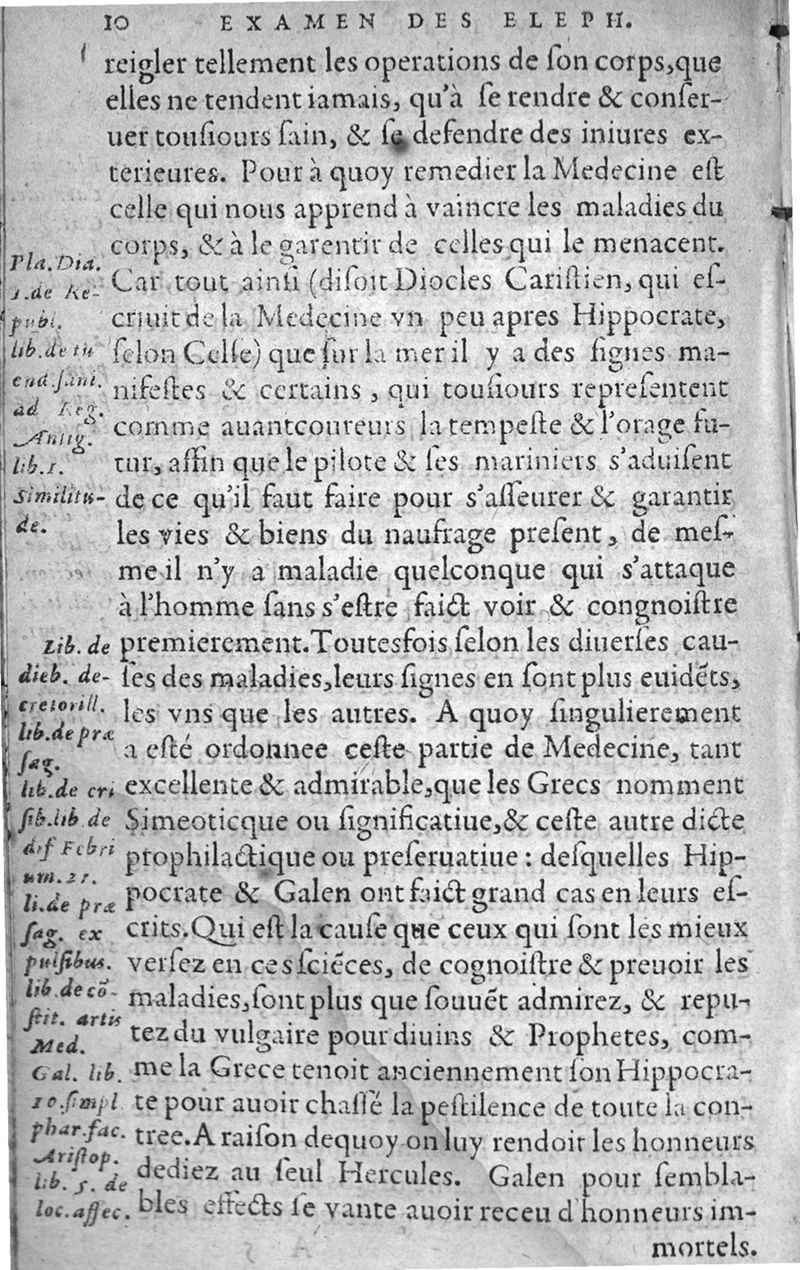 10 EXAMEN DES ELEPH.
reigler tellement les operations de ſon corps,que
elles ne tendent iamais, qu'à ſe rendre & conſer-
uer touſiours ſain, & ſe defendre des iniures ex-
terieures. Pour à quoy remedier la Medecine eſt
celle qui nous apprend à vaincre les maladies du
corps, & à le garentir de celles qui le menacent.
Car tout ainſi (diſoit Diocles Cariſtien, qui eſ-
criuit de la Medecine vn peu apres Hippocrate,
ſelon Celſe) que ſur la mer il y a des ſignes ma-
nifeſtes & certains , qui touſiours repreſentent
comme auantcoureurs la tempeſte & l'orage fu-
tur, affin que le pilote & ſes mariniers s'aduiſent
de ce qu'il faut faire pour s'aſſeurer & garantir
les vies & biens du naufrage preſent, de meſ-
me il n'y a maladie quelconque qui s'attaque
à l'homme ſans s'eſtre faict voir & congnoiſtre
premierement.Toutesfois ſelon les diuerſes cau-
ſes des maladies,leurs ſignes en ſont plus euidẽts,
les vns que les autres. A quoy ſingulierement
a eſté ordonnee ceſte partie de Medecine, tant
excellente & admirable,que les Grecs nomment
Simeoticque ou ſignificatiue,& ceſte autre dicte
prophilactique ou preſeruatiue : deſquelles Hip-
pocrate & Galen ont faict grand cas en leurs eſ-
crits.Qui eſt la cauſe que ceux qui ſont les mieux
verſez en ces ſciẽces, de cognoiſtre & preuoir les
maladies,ſont plus que ſouuẽt admirez, & repu-
tez du vulgaire pour diuins & Prophetes, com-
me la Grece tenoit anciennement ſon Hippocra-
te pour auoir chaſſé la peſtilence de toute la con-
tree.A raiſon dequoy on luy rendoit les honneurs
dediez au ſeul Hercules. Galen pour ſembla-
bles effects ſe vante auoir receu d'honneurs im-
mortels.
Pla.Dia.
1.de Re-
publ.
lib.de tu
end.ſani.
ad Reg.
Antig.
lib.1.
Similitu-
de.
Lib. de
dieb. de-
cretorill.
lib.de præ
ſag.
lib.de cri
ſib.lib de
dif Febri
um.21.
li.de præ
ſag. ex
pulſibus.
lib.de cõ-
ſtit. artis
Med.
Gal. lib.
10.ſimpl
phar.fac.
Ariſtop.
lib. 5. de
loc.affec.